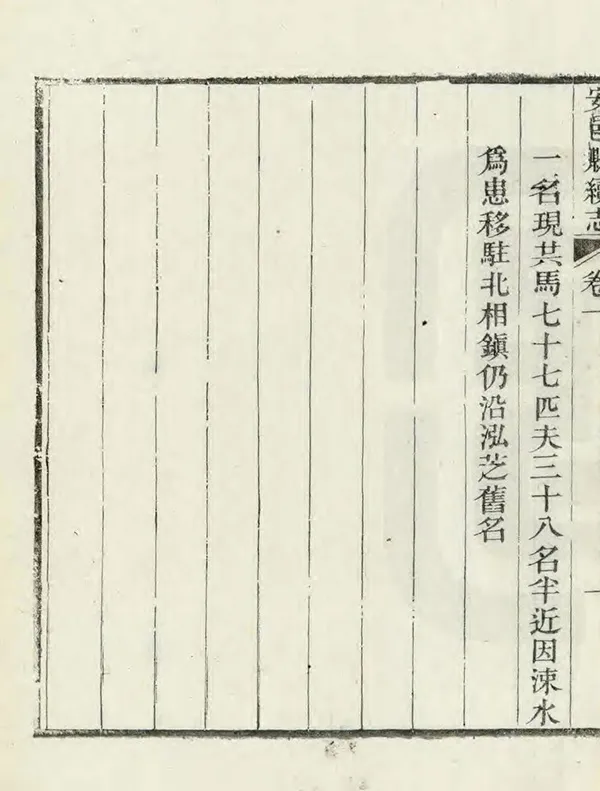 安邑縣續志 卷一 一
一名現共馬七十七匹夫三十八名半近因涑水
爲患移駐北相鎭仍沿泓芝舊名